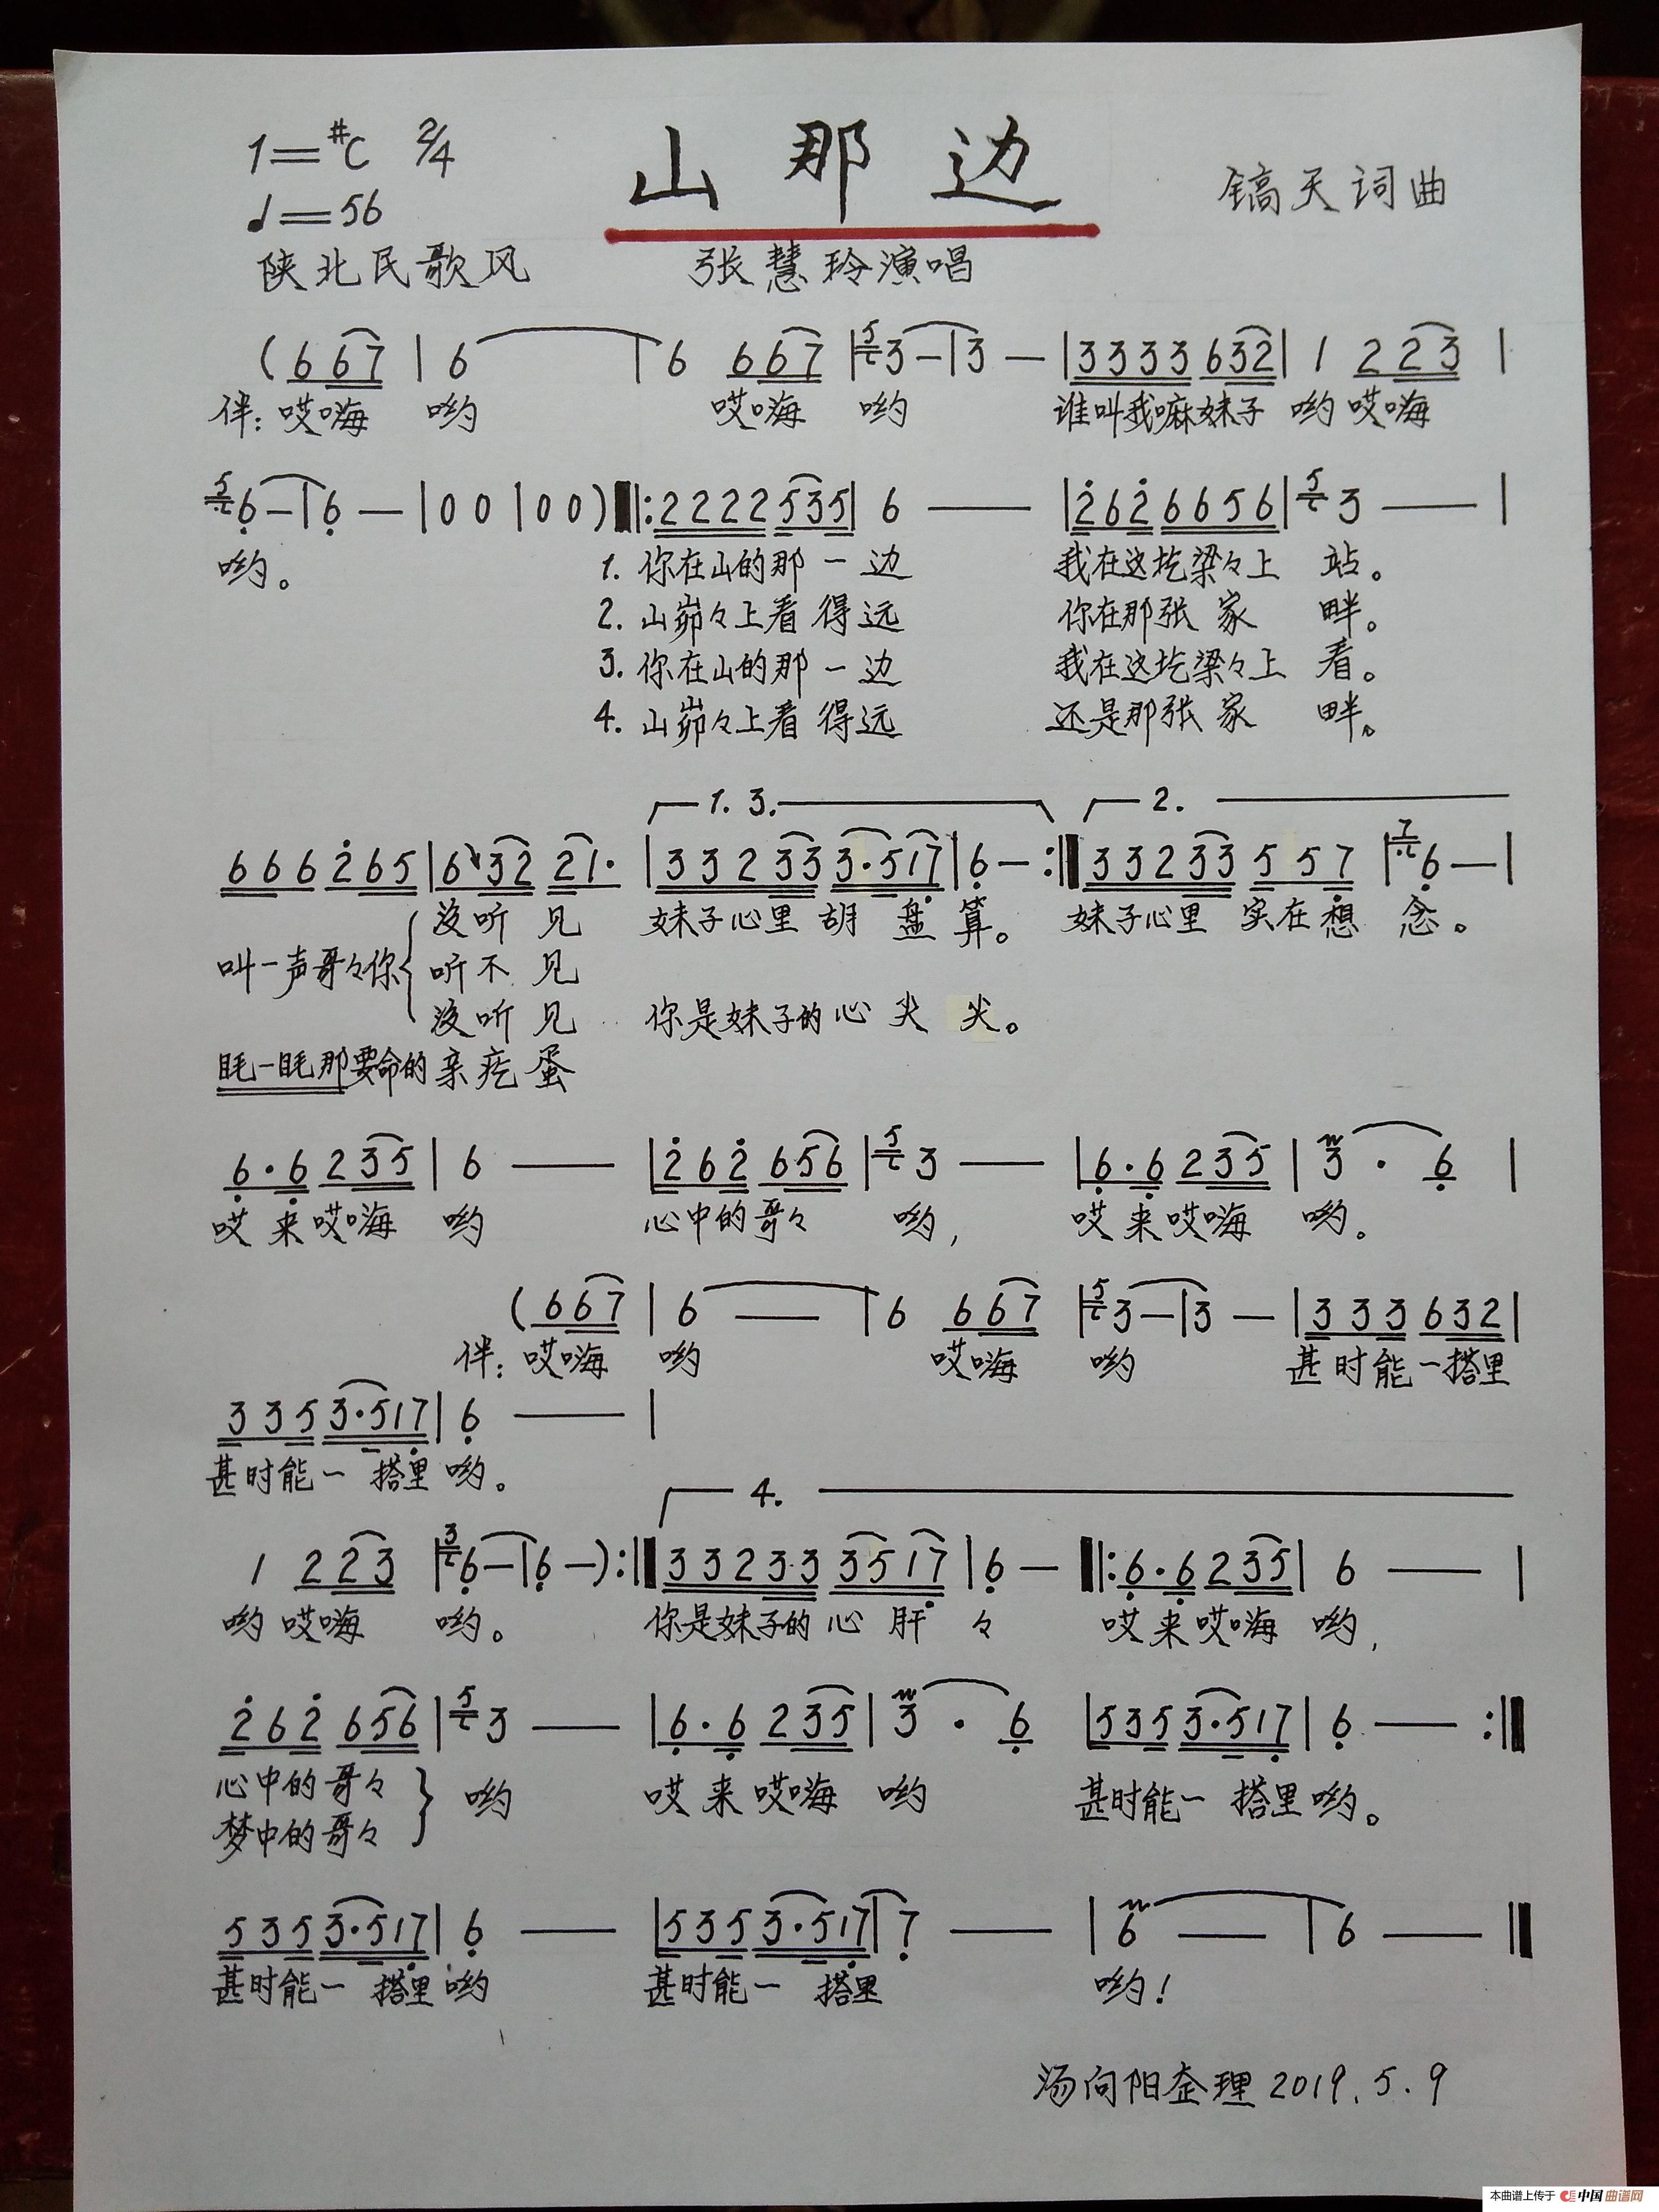 1=#C 2/4 山那边 镐天词曲
♩=56
陕北民歌风 张慧玲演唱
(6 6 7 | 6 | 6 6 6 7 | 5 3 — | 3 — | 3 3 3 3 6 3 2 | 1 2 2 3 |
伴:哎嗨 哟 哎嗨 哟 谁叫我嘛妹子 哟 哎嗨
5 6 — | 6 — | 0 0 | 0 0 ) |: 2 2 2 2 5 3 5 | 6 — | 2 6 2 6 6 5 6 | 5 3 — |
哟。 1. 你在山的那一边 我在这圪梁々上 站。
2. 山峁々上看得远 你在那张家 畔。
3. 你在山的那一边 我在这圪梁々上 看。
4. 山峁々上看得远 还是那张家 畔。
1. 3. 2.
6 6 6 2 6 5 | 6 3 2 2 1 · | 3 3 2 3 3 3 · 5 1 7 | 6 — :| 3 3 2 3 3 5 5 7 | 7 6 — |
没听见 妹子心里胡盘算。 妹子心里实在想念。
叫一声哥々你 { 听不见
没听见 你是妹子的心尖尖。
眊一眊那要命的亲疙蛋
6 · 6 2 3 5 | 6 — | 2 6 2 6 5 6 | 5 3 — | 6 · 6 2 3 5 | 3 · 6 |
哎来哎嗨 哟 心中的哥々 哟, 哎来哎嗨 哟。
(6 6 7 | 6 — | 6 6 6 7 | 5 3 — | 3 — | 3 3 3 6 3 2 |
伴:哎嗨 哟 哎嗨 哟 甚时能一搭里
3 3 5 3 · 5 1 7 | 6 — |
甚时能一搭里哟。
4.
1 2 2 3 | 3 6 — | 6 — ) :| 3 3 2 3 3 3 5 1 7 | 6 — |: 6 · 6 2 3 5 | 6 — |
哟 哎嗨 哟。 你是妹子的心肝々 哎来哎嗨 哟,
2 6 2 6 5 6 | 5 3 — | 6 · 6 2 3 5 | 3 · 6 | 5 3 5 3 · 5 1 7 | 6 — :|
心中的哥々 } 哟 哎来哎嗨 哟 甚时能一搭里哟。
梦中的哥々
5 3 5 3 · 5 1 7 | 6 — | 5 3 5 3 · 5 1 7 | 7 — | 6 — | 6 — ||
甚时能一搭里哟 甚时能一搭里 哟!
汤向阳整理 2019.5.9
本曲谱上传于 中国曲谱网